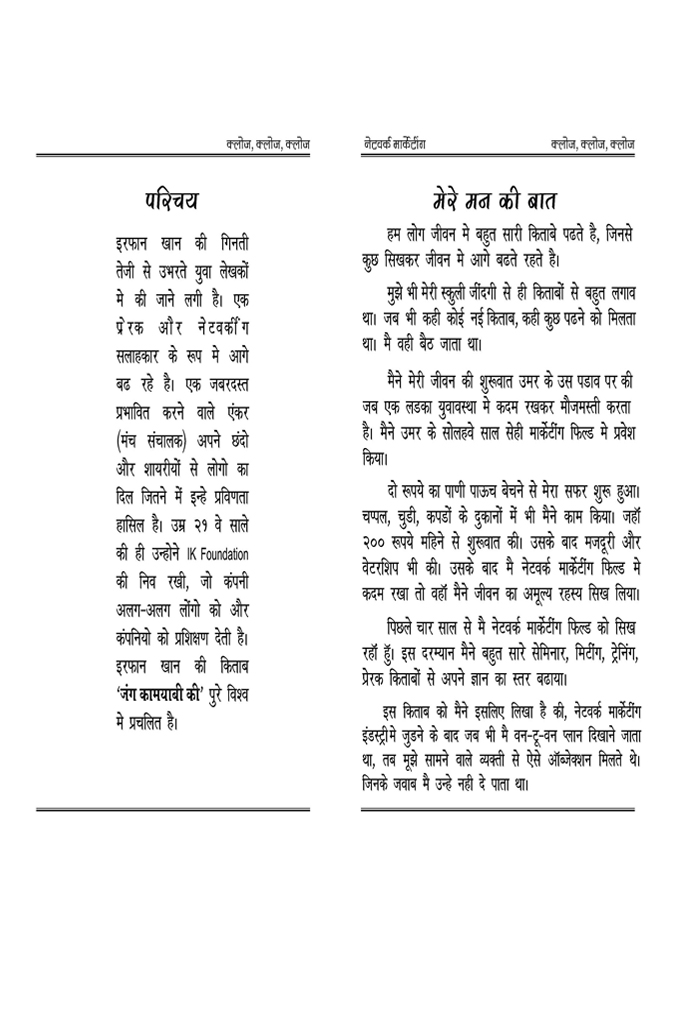 क्लोज, क्लोज, क्लोज
परिचय
इरफान खान की गिनती
तेजी से उभरते युवा लेखकों
मे की जाने लगी है। एक
प्रेरक और नेटवर्कींग
सलाहकार के रूप मे आगे
बढ रहे है। एक जबरदस्त
प्रभावित करने वाले एंकर
(मंच संचालक) अपने छंदो
और शायरीयों से लोगो का
दिल जितने में इन्हे प्रविणता
हासिल है। उम्र २१ वे साले
की ही उन्होने IK Foundation
की निव रखी, जो कंपनी
अलग-अलग लोंगो को और
कंपनियो को प्रशिक्षण देती है।
इरफान खान की किताब
‘जंग कामयाबी की’ पुरे विश्व
मे प्रचलित है।
नेटवर्क मार्केटींग क्लोज, क्लोज, क्लोज
मेरे मन की बात
हम लोग जीवन मे बहुत सारी किताबे पढते है, जिनसे
कुछ सिखकर जीवन मे आगे बढते रहते है।
मुझे भी मेरी स्कुली जींदगी से ही किताबों से बहुत लगाव
था। जब भी कही कोई नई किताब, कही कुछ पढने को मिलता
था। मै वही बैठ जाता था।
मैने मेरी जीवन की शुरूवात उमर के उस पडाव पर की
जब एक लडका युवावस्था मे कदम रखकर मौजमस्ती करता
है। मैने उमर के सोलहवे साल सेही मार्केटींग फिल्ड मे प्रवेश
किया।
दो रूपये का पाणी पाऊच बेचने से मेरा सफर शुरू हुआ।
चप्पल, चुडी, कपडों के दुकानों में भी मैने काम किया। जहॉ
२०० रूपये महिने से शुरूवात की। उसके बाद मजदूरी और
वेटरशिप भी की। उसके बाद मै नेटवर्क मार्केटींग फिल्ड मे
कदम रखा तो वहॉ मैने जीवन का अमूल्य रहस्य सिख लिया।
पिछले चार साल से मै नेटवर्क मार्केटींग फिल्ड को सिख
रहॉ हूॅ। इस दरम्यान मैने बहुत सारे सेमिनार, मिटींग, ट्रेनिंग,
प्रेरक किताबों से अपने ज्ञान का स्तर बढाया।
इस किताब को मैने इसलिए लिखा है की, नेटवर्क मार्केटींग
इंडस्ट्रीमे जुडने के बाद जब भी मै वन-टू-वन प्लान दिखाने जाता
था, तब मूझे सामने वाले व्यक्ती से ऐसे ऑब्जेक्शन मिलते थे।
जिनके जवाब मै उन्हे नही दे पाता था।